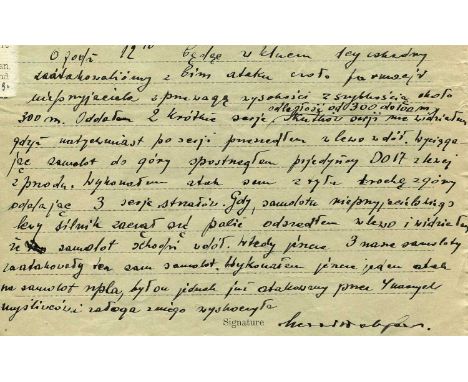 O godz 12 będąc w kluczu tej eskadry
zaatakowaliśmy z bim ataku czoło formacji
nieprzyjaciela z przewagą wysokości z szybkością około
odległość od 300 do 100 m
300 m. Oddałem 2 krótkie serje. Skutków serji nie widziałem
gdyż natychmiast po serji przeszedłem w lewo w dół. Wyciąga
jąc samolot do góry spostrzegłem pojedynczy DO17 z lewej
z przodu. Wykonałem atak sam z tyłu trochę z góry
oddając 3 serje strzałów. Gdy samolotu nieprzyjacielskiego
lewy silnik zaczął się palić odszedłem w lewo i widziałem
że samolot schodzi w dół. Wtedy jeszcze 3 nasze samoloty
zaatakowały ten sam samolot. Wykonałem jeszcze jeden atak
na samolot npla, był on jednak już atakowany przez 4 naszych
myśliwców i załoga z niego wyskoczyła
Signature